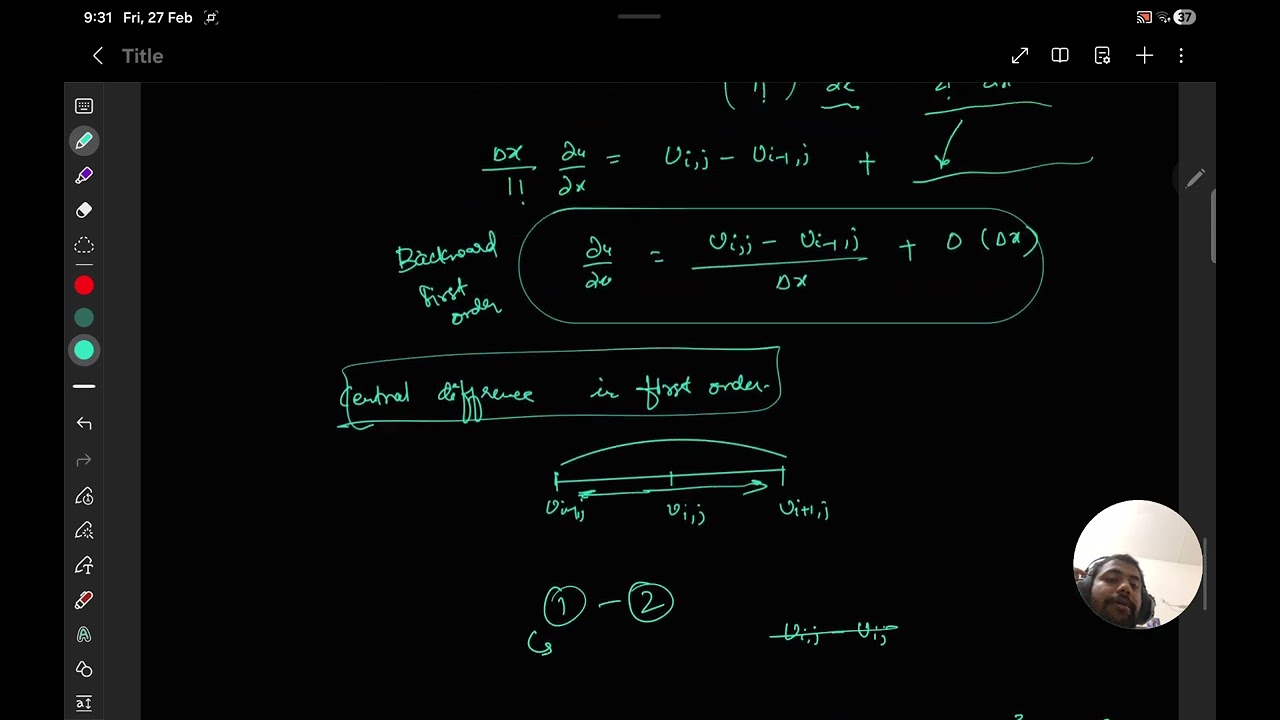 9:31 Fri, 27 Feb 37
Title
1!
Δx/1! ∂u/∂x = Ui,j - Ui-1,j +
Backward first order
∂u/∂x = (Ui,j - Ui-1,j)/Δx + O (Δx)
Central difference in first order.
Ui-1,j Ui,j Ui+1,j
① - ②
Ui,j - Ui,j